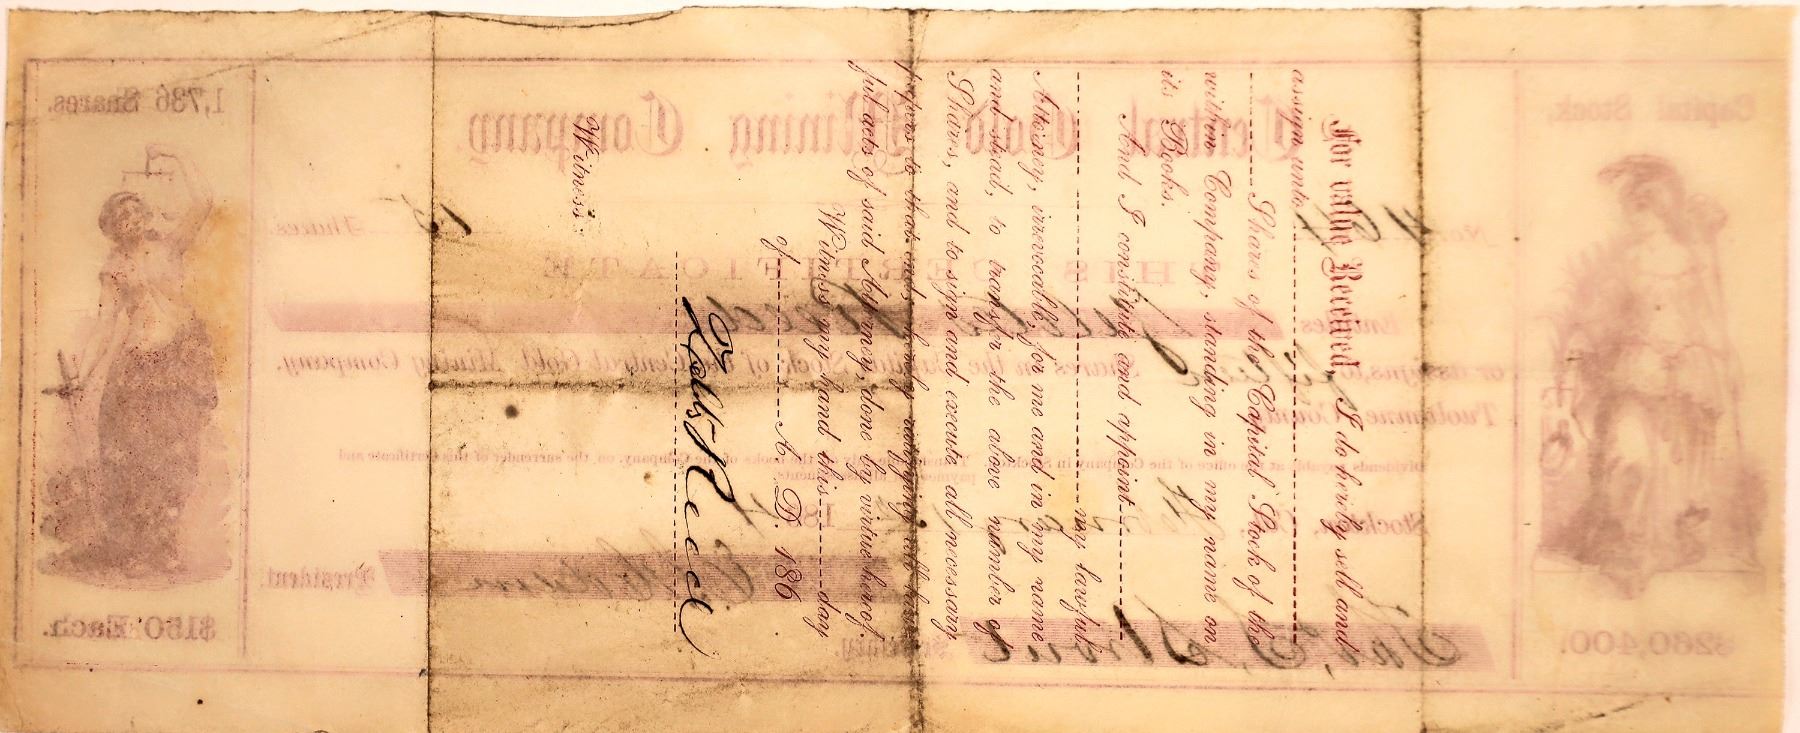 For value Received, I do hereby sell and
assign unto
Shares of the Capital Stock of the
within Company, standing in my name on
its Books.
And I constitute and appoint
my lawful
Attorney, irrevocable, for me and in my name
and stead, to transfer the above number of
Shares, and to sign and execute all necessary
papers to that end, hereby
ful acts of said Attorney, done by virtue hereof.
Witness my hand this day
of A. D. 186
Witness:
Capital Stock.
$260,400.
Central Gold Mining Company.
No.
15 Shares.
THIS CERTIFICATE
Entitles
or assigns, to Fifteen Shares in the Capital Stock of the Central Gold Mining Company,
Tuolumne County
Dividends payable at the office of the Company in Stockton. the Books of the Company, on the surrender of this Certificate and
payment of all assessments.
Stockton, 1864
Secretary
President.
1,736 Shares.
$150 Each.